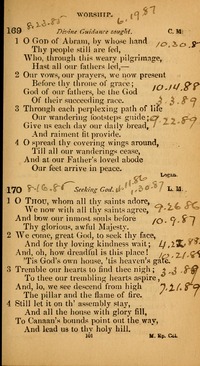 WORSHIP.
8.23.85 6.19.87
169 Divine Guidance sought. C. M.
1 O God of Abram, by whose hand
Thy people still are fed, 10.30.8
Who, through this weary pilgrimage,
Hast all our fathers led,—
2 Our vows, our prayers, we now present
Before thy throne of grace; 10.14.88
God of our fathers, be the God
Of their succeeding race. 3.3.89
3 Through each perplexing path of life
Our wandering footsteps guide; 9.22.89
Give us each day our daily bread,
And raiment fit provide.
4 O spread thy covering wings around,
Till all our wanderings cease,
And at our Father's loved abode
Our feet arrive in peace.
Logan.
170 8.16.85 Seeking God. L. M.
1.30.87
1 O Thou, whom all thy saints adore,
We now with all thy saints agree, 9.26.86
And bow our inmost souls before
Thy glorious, awful Majesty. 10.9.87
2 We come, great God, to seek thy face,
And for thy loving kindness wait;
And, oh, how dreadful is this place! 10.21.88
'Tis God's own house, 'tis heaven's gate.
3 Tremble our hearts to find thee nigh; 3.3.89
To thee our trembling hearts aspire,
And, lo, we see descend from high 7.21.89
The pillar and the flame of fire.
4 Still let it on th' assembly stay,
And all the house with glory fill,
To Canaan's bounds point out the way,
And lead us to thy holy hill.
101 M. Ep. Col.